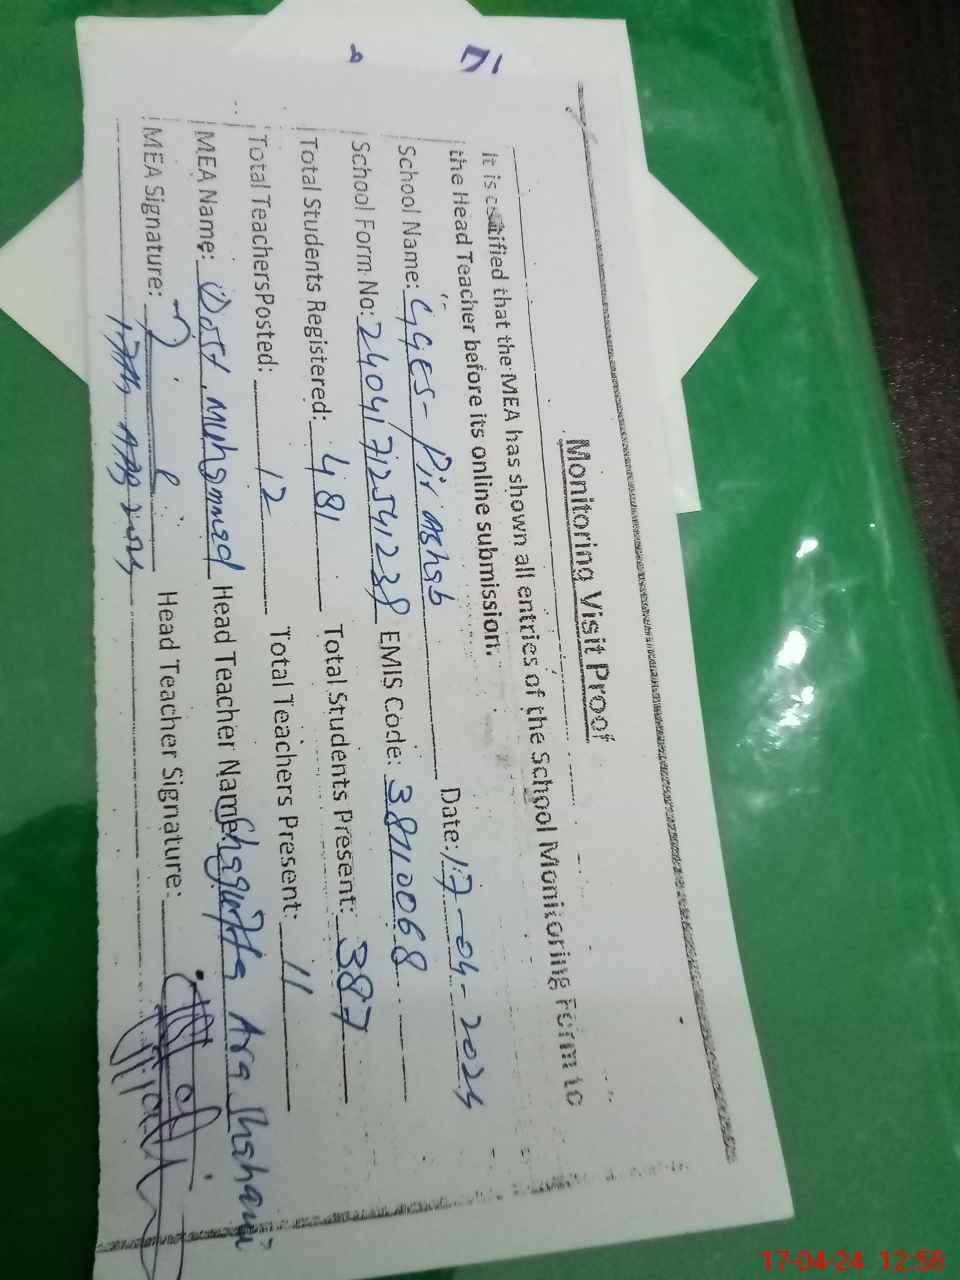 Monitoring Visit Proof
It is certified that the MEA has shown all entries of the School Monitoring Form to
the Head Teacher before its online submission.
School Name: GGES- Pir Date: 17-04-2024
School Form No: 24041712541238 EMIS Code: 38710068
Total Students Registered: 481 Total Students Present: 387
Total TeachersPosted: 12 Total Teachers Present: 11
MEA Name: Dost Muhammad Head Teacher Name: Ara Shaheen
MEA Signature: Head Teacher Signature:
17-04-24 12:58